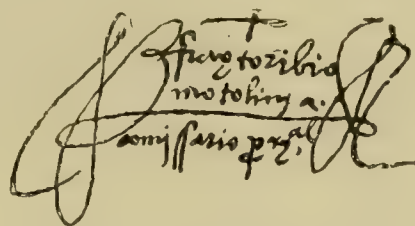 fray toribio
motolinia.
comissario